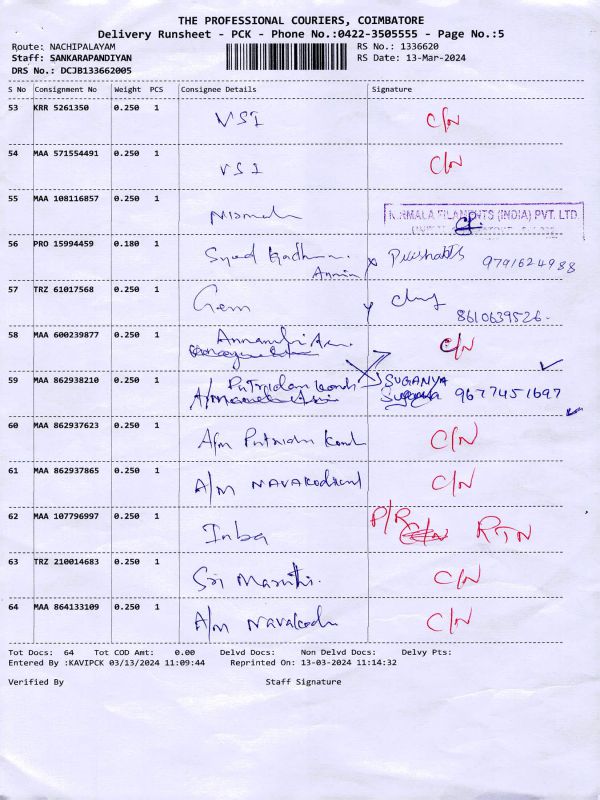 THE PROFESSIONAL COURIERS, COIMBATORE
Delivery Runsheet - PCK - Phone No.:0422-3505555 - Page No.:5
Route: NACHIPALAYAM RS No.: 1336620
Staff: SANKARAPANDIYAN RS Date: 13-Mar-2024
DRS No.: DCJB133662005
S No Consignment No Weight PCS Consignee Details Signature
53 KRR 5261350 0.250 1 VSI C/N
54 MAA 571554491 0.250 1 VSI C/N
55 MAA 108116857 0.250 1
NIRMALA FILAMENTS (INDIA) PVT. LTD.
56 PRO 15994459 0.180 1 Syed 9791624988
57 TRZ 61017568 0.250 1 Gem
8610639526
58 MAA 600239877 0.250 1 C/N
59 MAA 862938210 0.250 1 SUGANYA
9677451697
60 MAA 862937623 0.250 1 A/m C/N
61 MAA 862937865 0.250 1 A/M C/N
62 MAA 107796997 0.250 1 Inba P/R C/N RTN
63 TRZ 210014683 0.250 1 Sri Maruthi. C/N
64 MAA 864133109 0.250 1 A/m C/N
Tot Docs: 64 Tot COD Amt: 0.00 Delvd Docs: Non Delvd Docs: Delvy Pts:
Entered By :KAVIPCK 03/13/2024 11:09:44 Reprinted On: 13-03-2024 11:14:32
Verified By Staff Signature